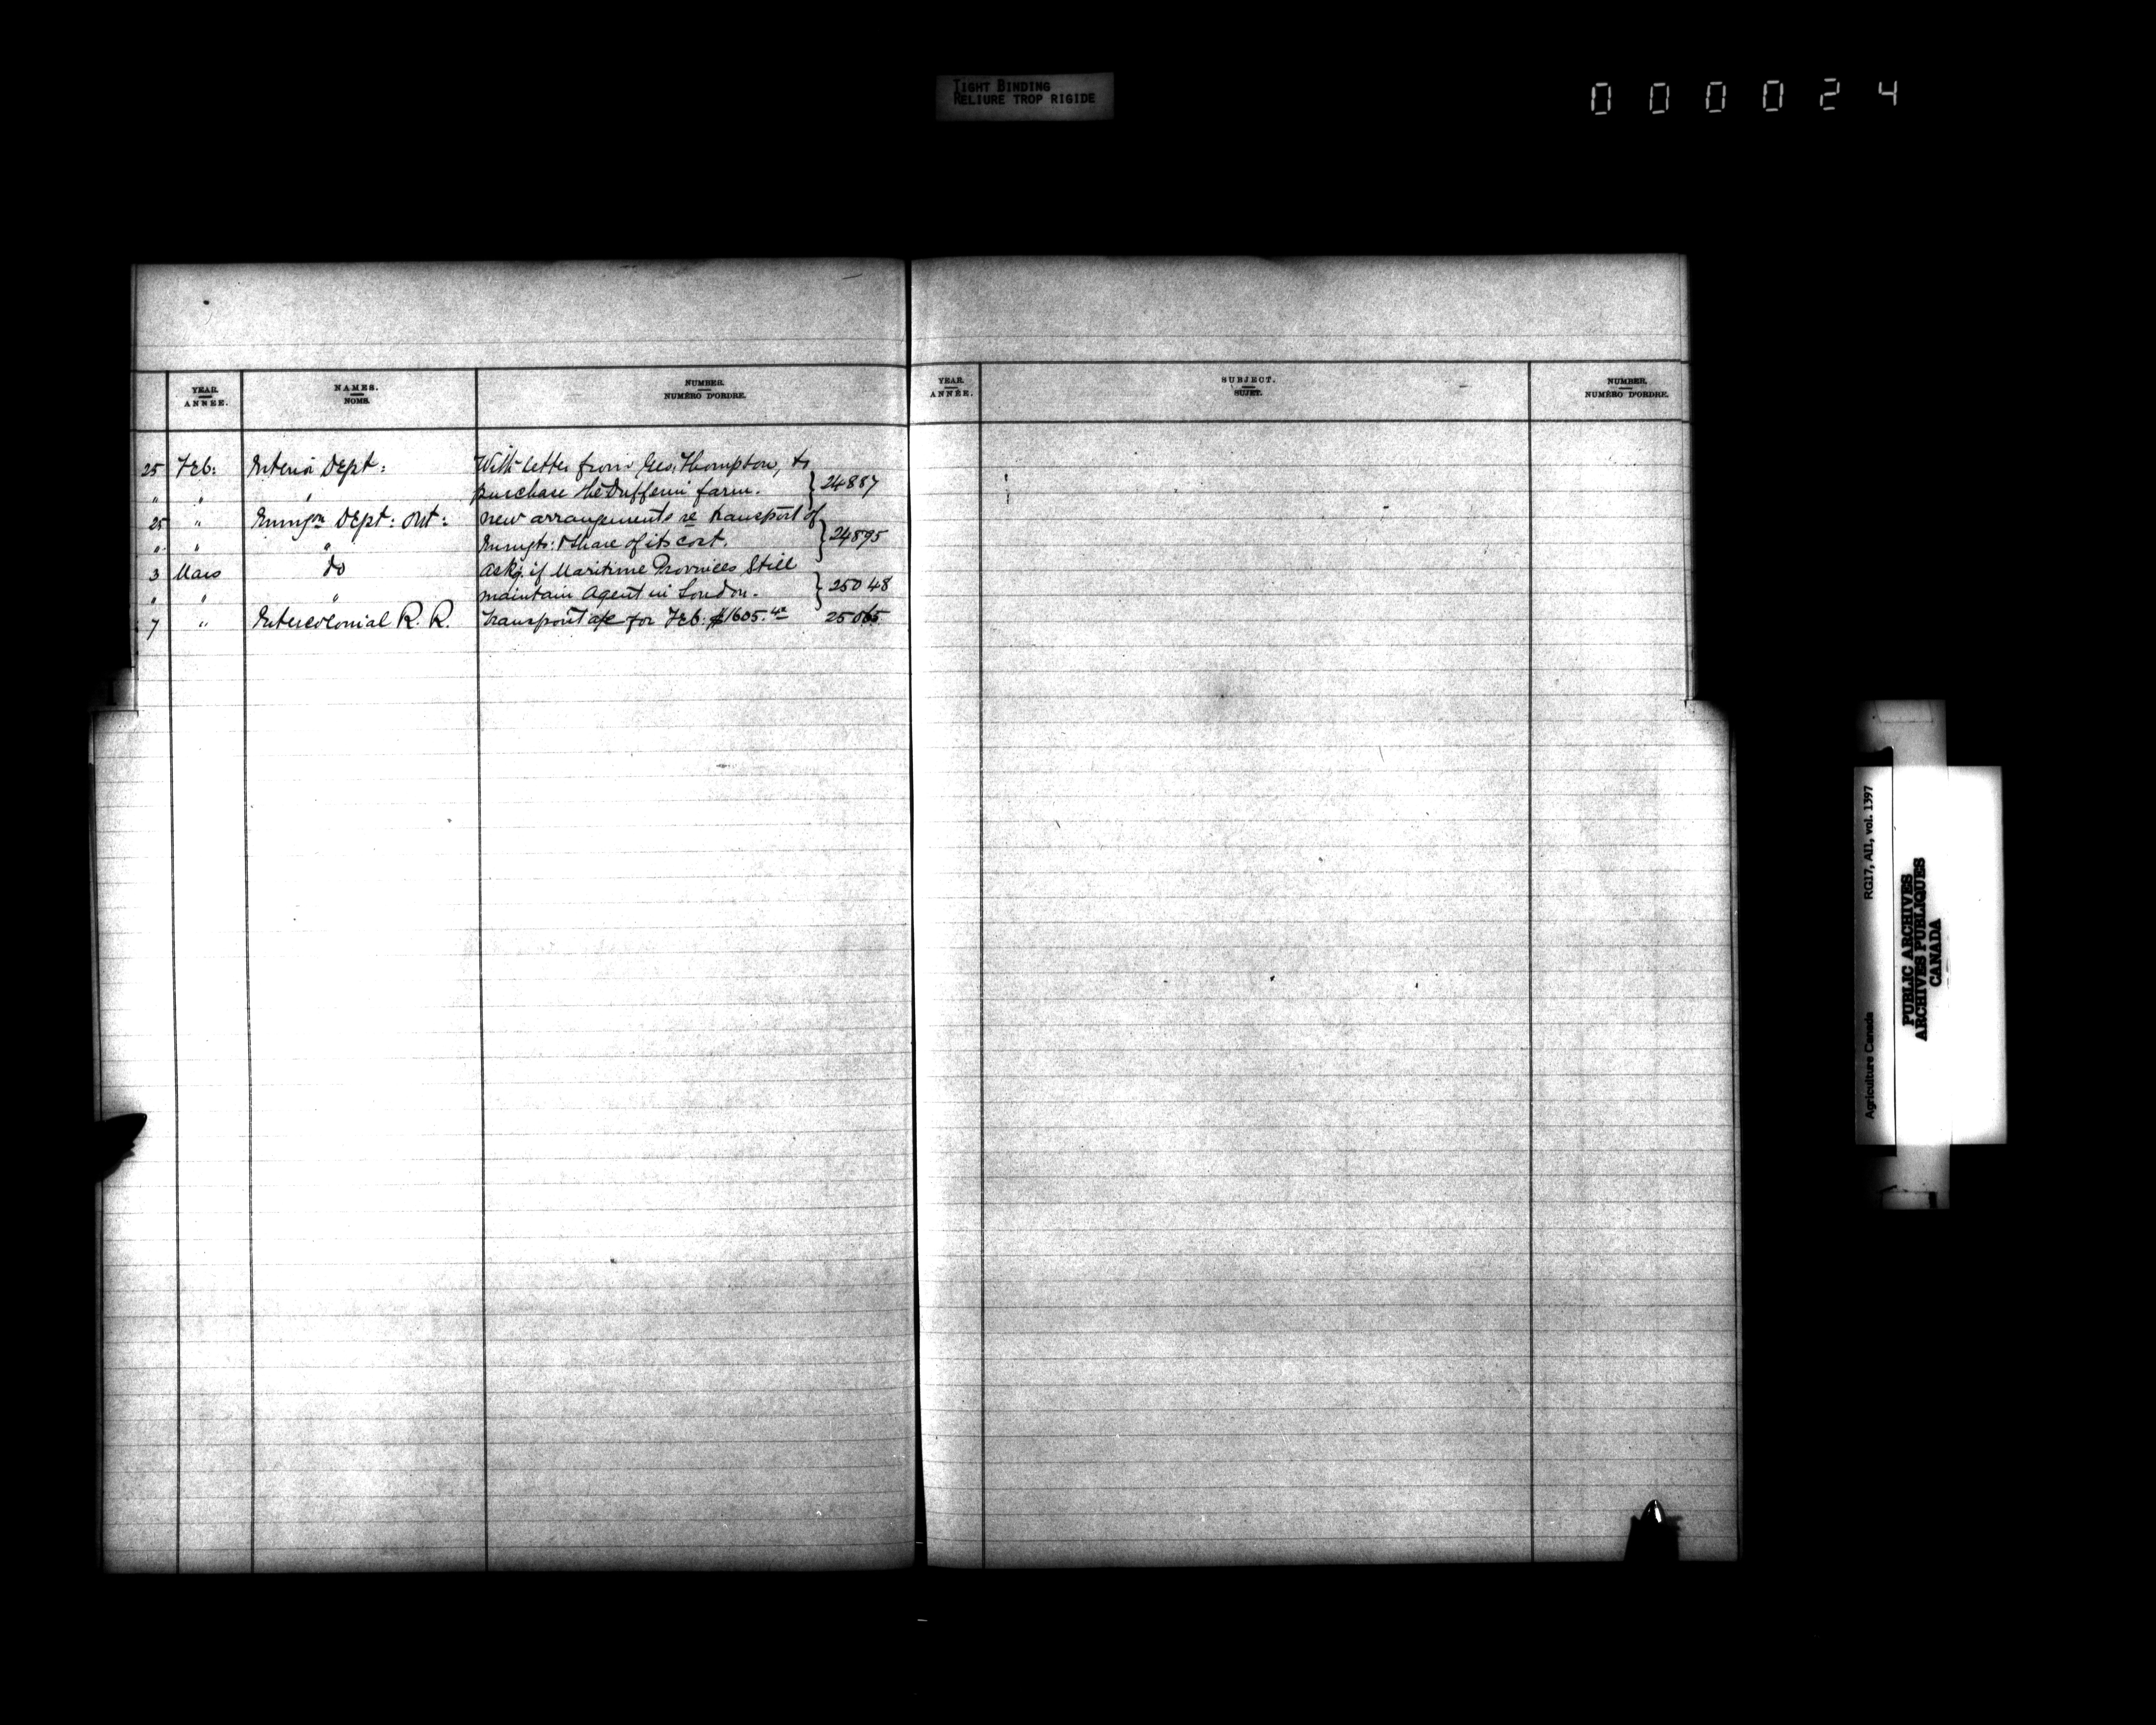 TIGHT BINDING
RELIURE TROP RIGIDE
000024
YEAR. NAMES. NUMBER.
ANNÉE. NOMS. NUMÉRO D'ORDRE.
YEAR. SUBJECT. NUMBER.
ANNÉE. SUJET. NUMÉRO D'ORDRE.
25 Feb: Interior Dept: With letter from Geo. Thompson, to
" " " purchase the Dufferin farm. } 24887
25 " Immigon Dept: Ont: new arrangements re transport of
" " " Immgts: & share of its cost. } 24895
3 Mars do Askg. if Maritime Provinces Still
" " " maintain Agent in London. } 25048
7 " Intercolonial R. R. Transport a/c for Feb: $1605.40 25065
I
Agriculture Canada RG17, AII, vol. 1397
PUBLIC ARCHIVES
ARCHIVES PUBLIQUES
CANADA